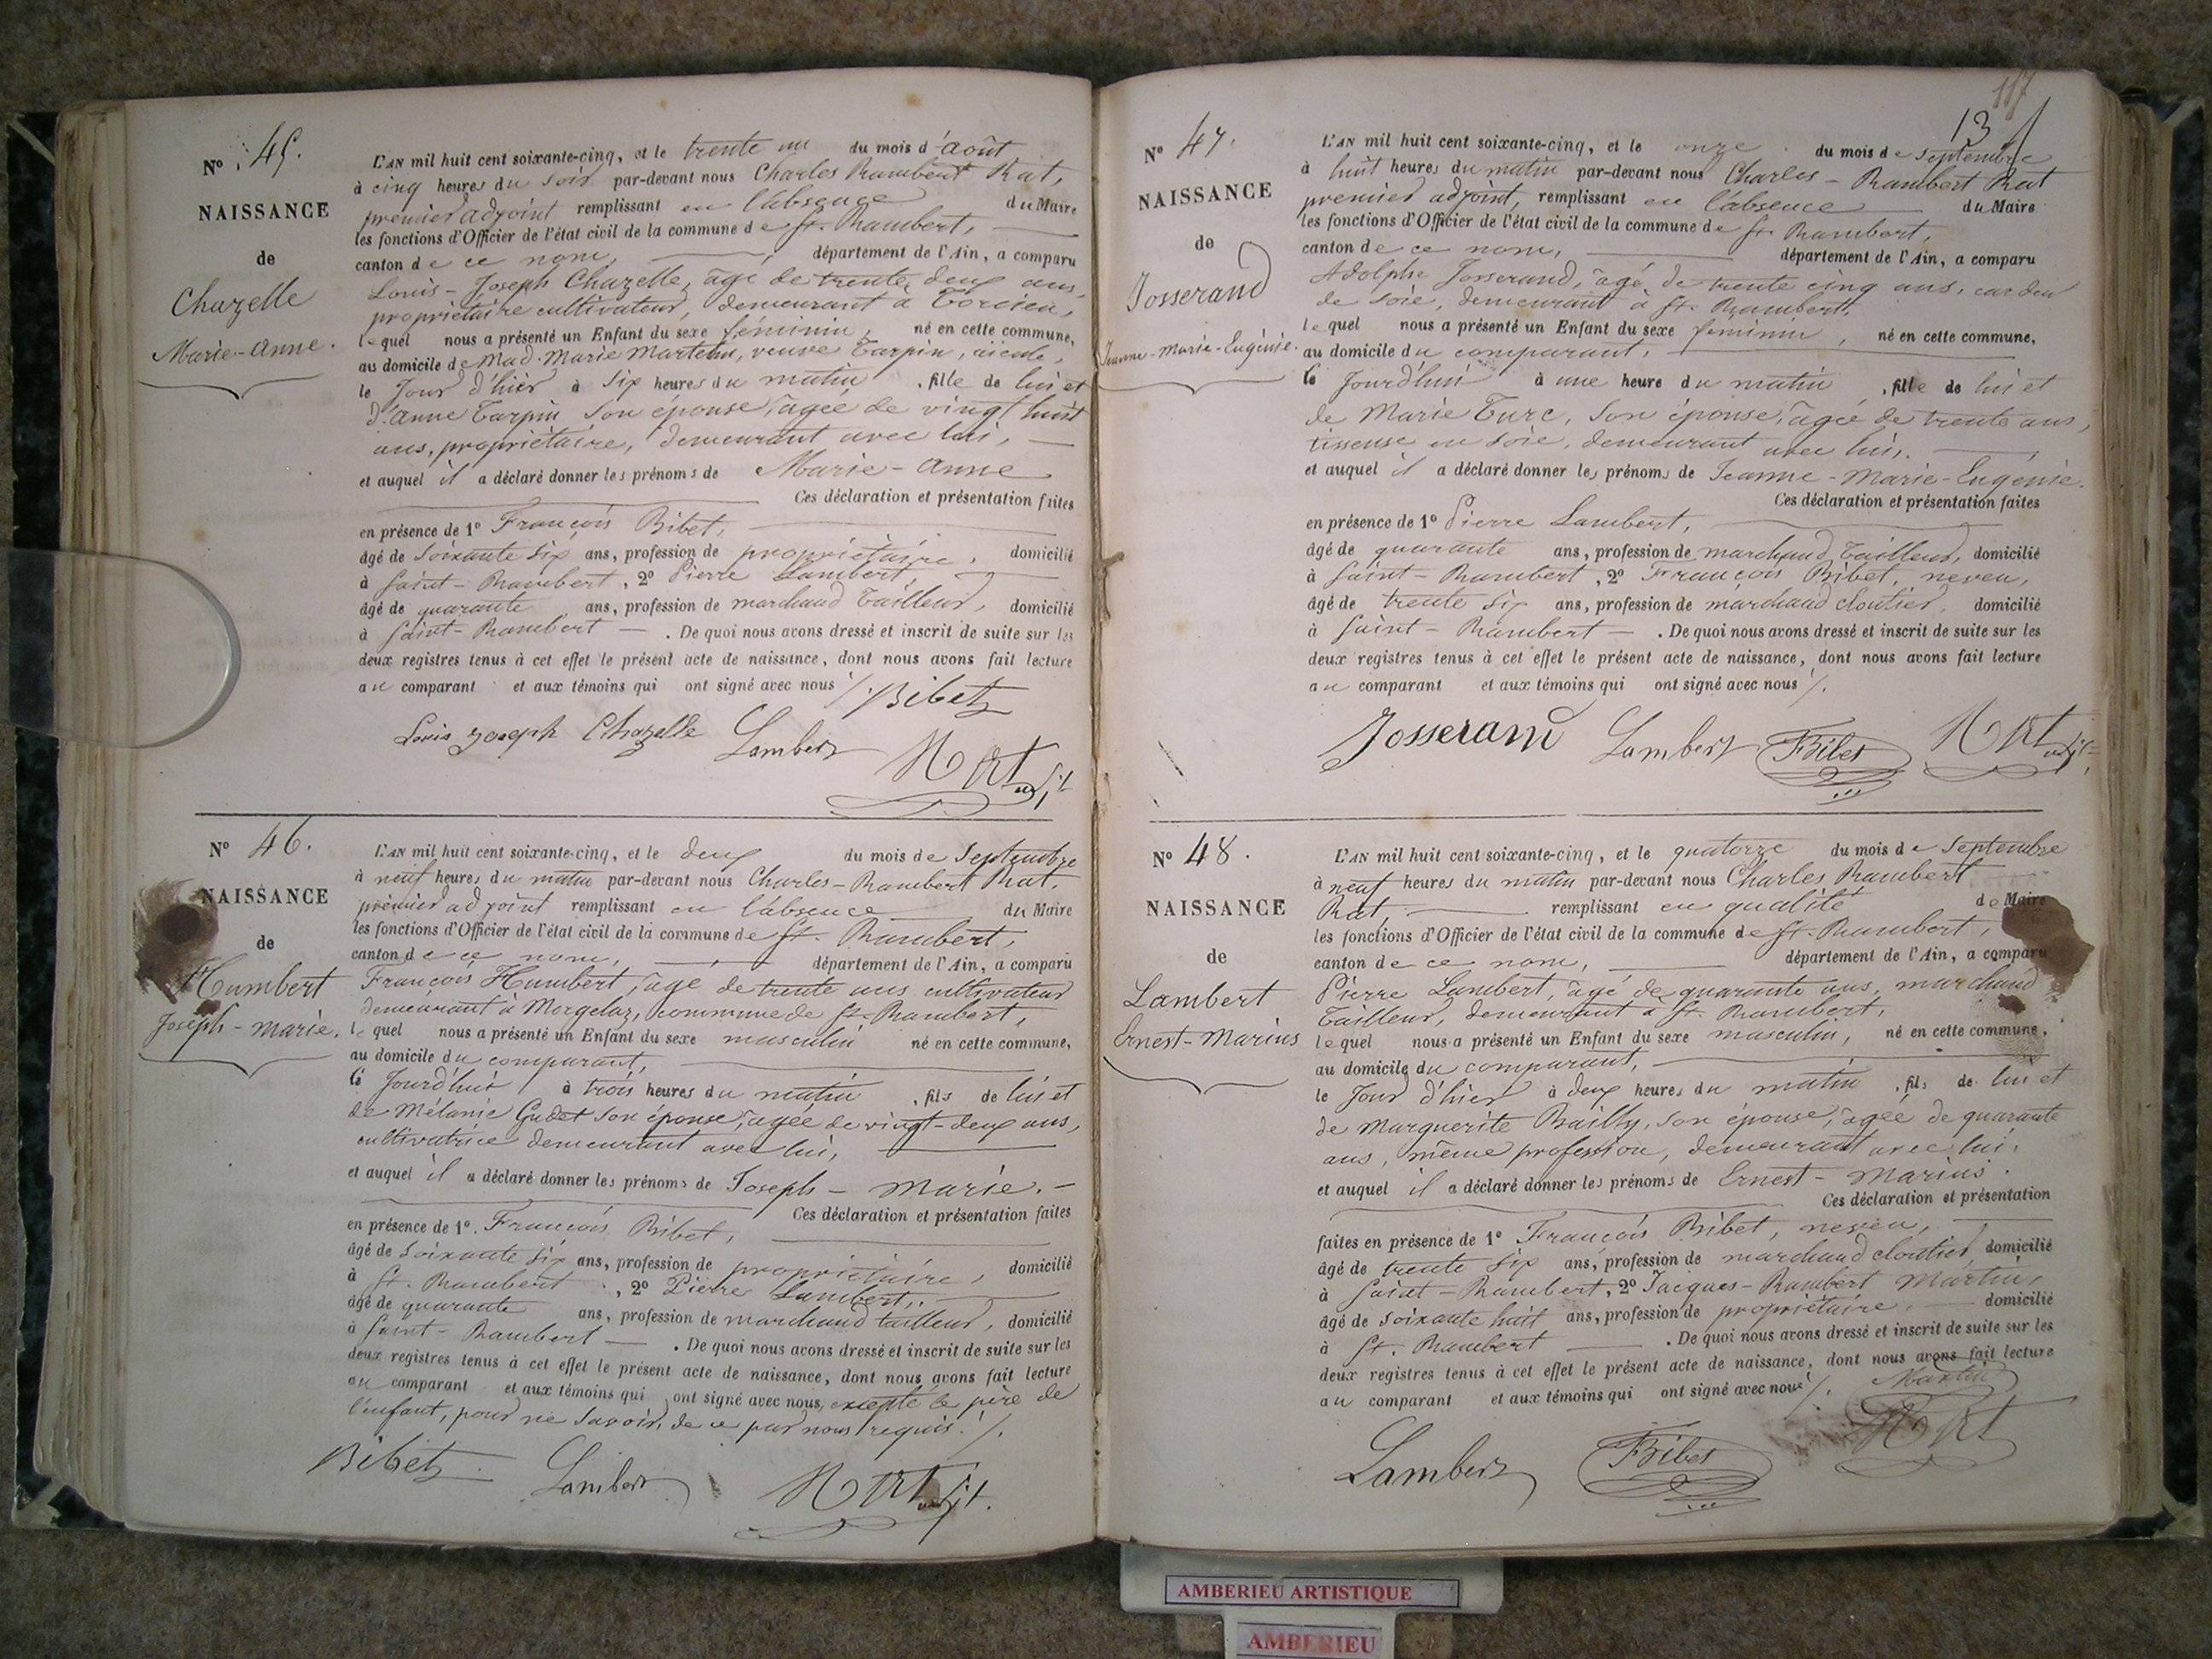 Nº 45.
NAISSANCE
de
Chazelle
Marie-Anne.
L'AN mil huit cent soixante-cinq, et le trente un du mois d'Août
à cinq heures du soir par-devant nous Charles Rambert Rat,
premier adjoint remplissant en l'absence du Maire
les fonctions d'Officier de l'état civil de la commune de St. Rambert,
canton de ce nom, département de l'Ain, a comparu
Louis-Joseph Chazelle, âgé de trente deux ans,
propriétaire cultivateur, demeurant à Torcieu,
lequel nous a présenté un Enfant du sexe féminin, né en cette commune,
au domicile de Mad. Marie Martelin, veuve Tarpin, aïeule,
le Jour d'hier à six heures du matin, fille de lui et
d'Anne Tarpin son épouse, âgée de vingt huit
ans, propriétaire, demeurant avec lui,
et auquel il a déclaré donner les prénoms de Marie-Anne
Ces déclaration et présentation faites
en présence de 1º François Bibet,
âgé de soixante six ans, profession de propriétaire, domicilié
à Saint-Rambert, 2º Pierre Lambert,
âgé de quarante ans, profession de marchand tailleur, domicilié
à Saint-Rambert. De quoi nous avons dressé et inscrit de suite sur les
deux registres tenus à cet effet le présent acte de naissance, dont nous avons fait lecture
au comparant et aux témoins qui ont signé avec nous /. Bibet
Louis Joseph Chazelle Lambert Rat adjt
Nº 46.
NAISSANCE
de
Humbert
Joseph-Marie.
L'AN mil huit cent soixante-cinq, et le deux du mois de Septembre
à neuf heures du matin par-devant nous Charles-Rambert Rat,
premier adjoint remplissant en l'absence du Maire
les fonctions d'Officier de l'état civil de la commune de St. Rambert,
canton de ce nom, département de l'Ain, a comparu
François Humbert, âgé de trente ans cultivateur
demeurant à Morgelaz, commune de St. Rambert,
lequel nous a présenté un Enfant du sexe masculin né en cette commune,
au domicile du comparant,
le Jourd'hui à trois heures du matin, fils de lui et
de Mélanie Gudet son épouse, âgée de vingt-deux ans,
cultivatrice demeurant avec lui,
et auquel il a déclaré donner les prénoms de Joseph-Marie.
Ces déclaration et présentation faites
en présence de 1º. François Bibet,
âgé de soixante six ans, profession de propriétaire, domicilié
à St. Rambert, 2º Pierre Lambert,
âgé de quarante ans, profession de marchand tailleur, domicilié
à Saint-Rambert. De quoi nous avons dressé et inscrit de suite sur les
deux registres tenus à cet effet le présent acte de naissance, dont nous avons fait lecture
au comparant et aux témoins qui ont signé avec nous, excepté le père de
l'enfant, pour ne savoir, de ce par nous requis. /.
Bibet Lambert Rat adjt.
117
13
Nº 47.
NAISSANCE
de
Josserand
Jeanne-Marie-Eugénie.
L'AN mil huit cent soixante-cinq, et le onze du mois de Septembre
à huit heures du matin par-devant nous Charles-Rambert Rat
premier adjoint, remplissant en l'absence du Maire
les fonctions d'Officier de l'état civil de la commune de St. Rambert,
canton de ce nom, département de l'Ain, a comparu
Adolphe Josserand, âgé de trente cinq ans, cardeur
de soie, demeurant à St. Rambert,
lequel nous a présenté un Enfant du sexe féminin, né en cette commune,
au domicile du comparant,
le Jourd'hui à une heure du matin, fille de lui et
de Marie Turc, son épouse, âgée de trente ans,
tisseuse en soie, demeurant avec lui,
et auquel il a déclaré donner les prénoms de Jeanne-Marie-Eugénie.
Ces déclaration et présentation faites
en présence de 1º Pierre Lambert,
âgé de quarante ans, profession de marchand tailleur, domicilié
à Saint-Rambert, 2º François Bibet, neveu,
âgé de trente six ans, profession de marchand cloutier, domicilié
à Saint-Rambert. De quoi nous avons dressé et inscrit de suite sur les
deux registres tenus à cet effet le présent acte de naissance, dont nous avons fait lecture
au comparant et aux témoins qui ont signé avec nous /.
Josserand Lambert FBibet Rat adjt
Nº 48.
NAISSANCE
de
Lambert
Ernest-Marius
L'AN mil huit cent soixante-cinq, et le quatorze du mois de Septembre
à neuf heures du matin par-devant nous Charles Rambert
Rat, remplissant en qualité de Maire
les fonctions d'Officier de l'état civil de la commune de St. Rambert,
canton de ce nom, département de l'Ain, a comparu
Pierre Lambert, âgé de quarante ans, marchand
Tailleur, demeurant à St. Rambert,
lequel nous a présenté un Enfant du sexe masculin, né en cette commune,
au domicile du comparant,
le Jour d'hier à deux heures du matin, fils de lui et
de Marguerite Bailly, son épouse, âgée de quarante
ans, même profession, demeurant avec lui,
et auquel il a déclaré donner les prénoms de Ernest-Marius.
Ces déclaration et présentation
faites en présence de 1º François Bibet, neveu,
âgé de trente six ans, profession de marchand cloutier domicilié
à Saint-Rambert, 2º Jacques-Rambert Martin,
âgé de soixante huit ans, profession de propriétaire, domicilié
à St. Rambert. De quoi nous avons dressé et inscrit de suite sur les
deux registres tenus à cet effet le présent acte de naissance, dont nous avons fait lecture
au comparant et aux témoins qui ont signé avec nous /. Martin
Lambert FBibet Rat
AMBERIEU ARTISTIQUE
AMBERIEU